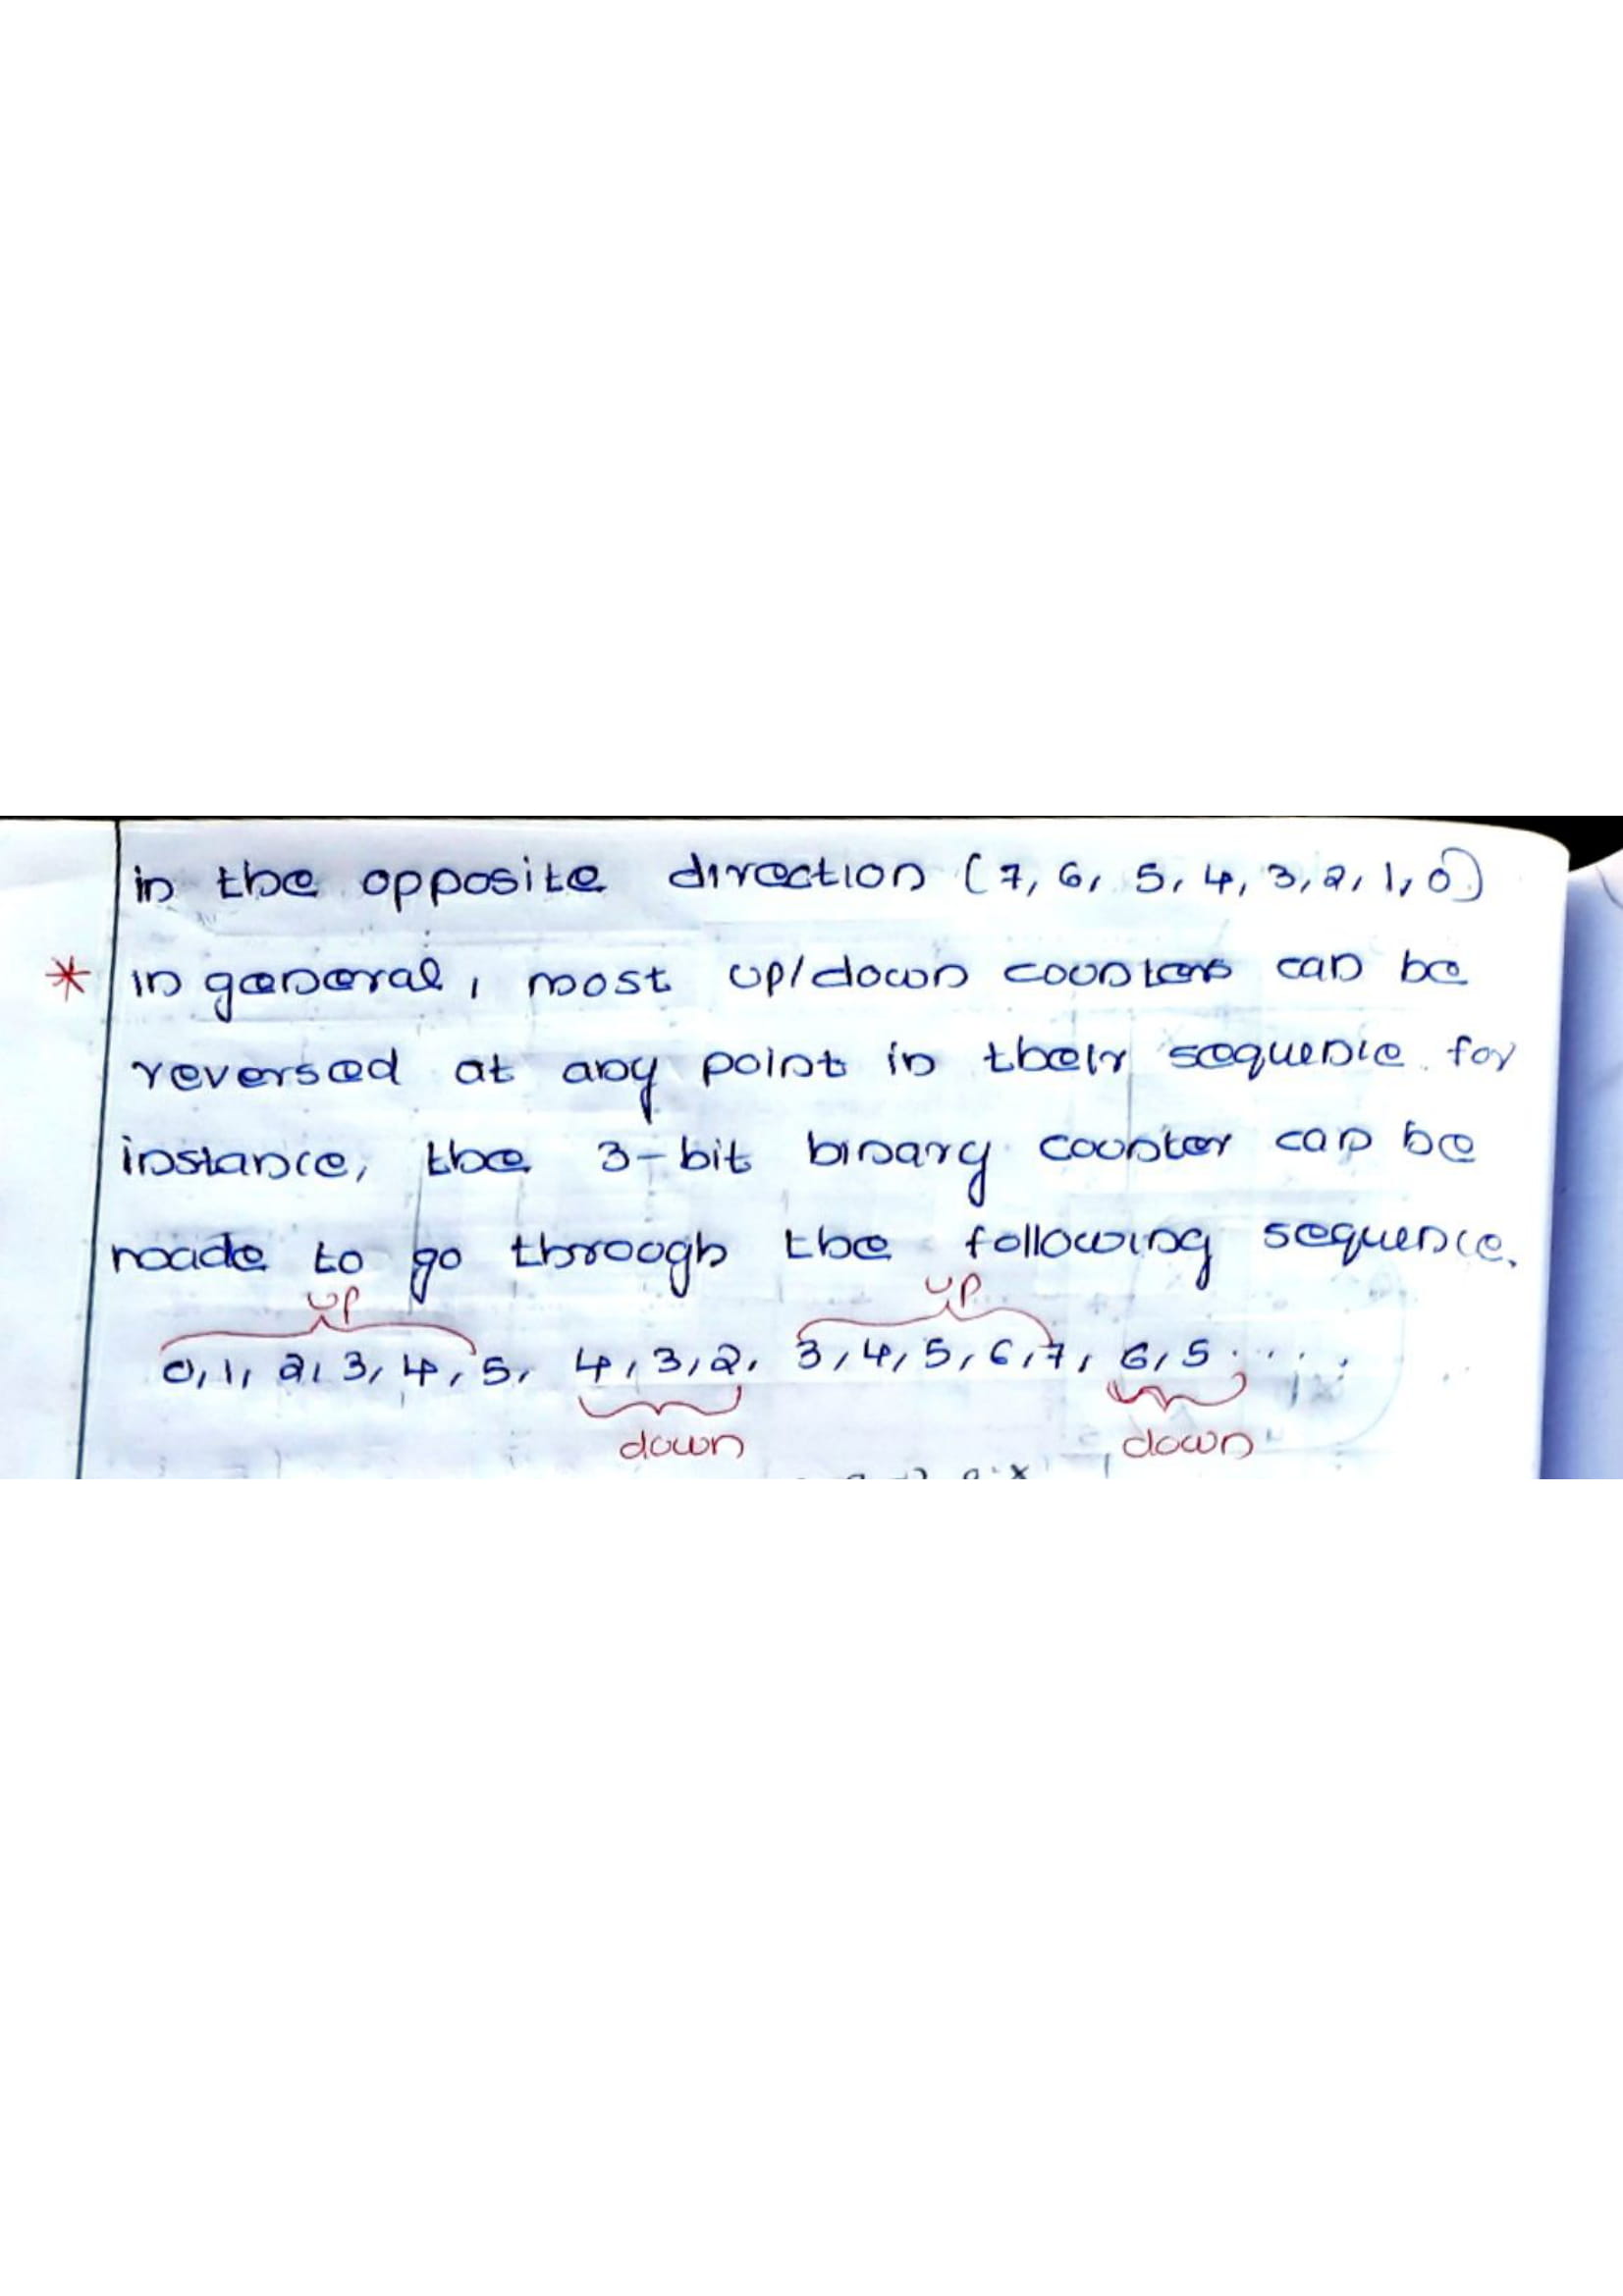 in the opposite direction (7, 6, 5, 4, 3, 2, 1, 0)
* in general, most up/down counters can be
reversed at any point in their sequence. for
instance, the 3-bit binary counter can be
made to go through the following sequence.
up up
0, 1, 2, 3, 4, 5, 4, 3, 2, 3, 4, 5, 6, 7, 6, 5 ....
down down